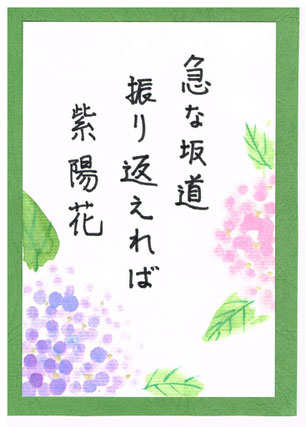 急な坂道
振り返えれば
紫陽花